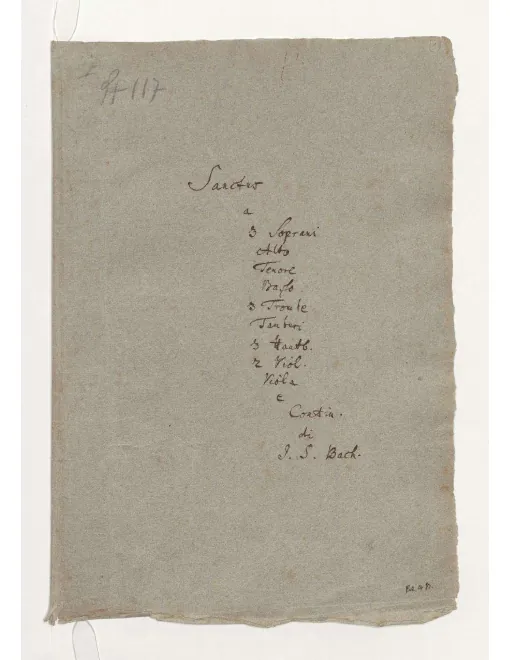 St 117
Sanctus
a
3 Soprani
Alto
Tenore
Basso
3 Trombe
Tamburi
3 Hautb.
2 Viol.
Viola
e
Contin.
di
J. S. Bach.